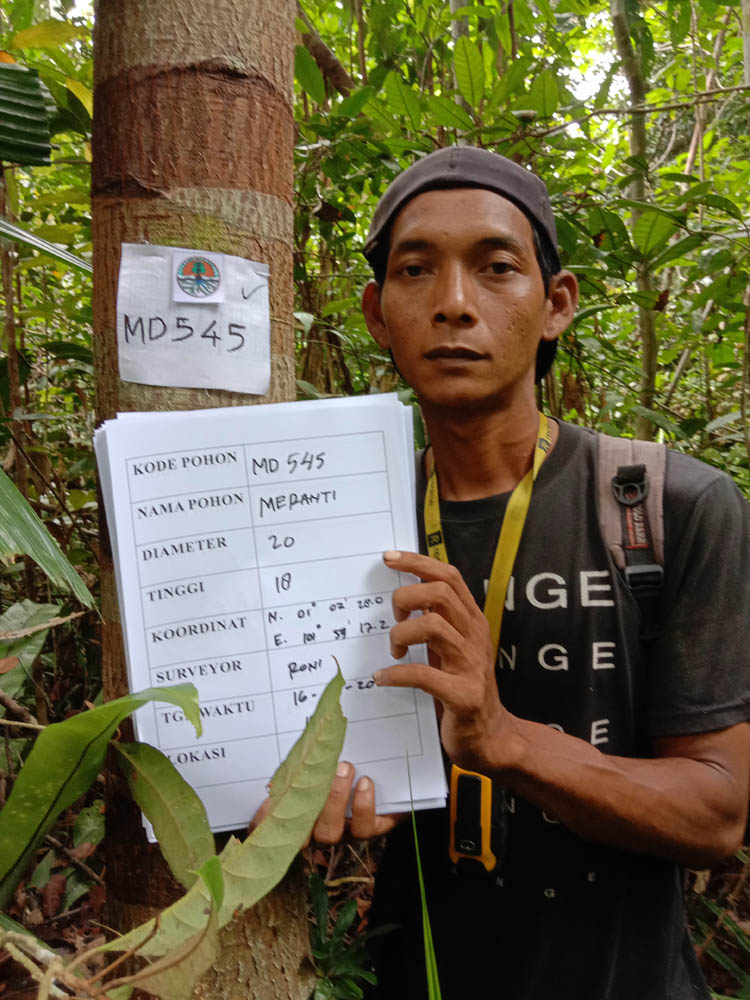 MD545
KODE POHON MD 545
NAMA POHON MERANTI
DIAMETER 20
TINGGI 18
KOORDINAT N. 01° 02' 28.0
E. 101° 59' 17.2
SURVEYOR RONI
TGL/WAKTU 16-
LOKASI
NGE
NGE
GE
E
NGE